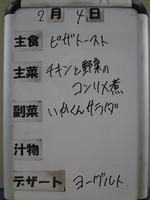 2月4日
主食 ピザトースト
主菜 チキンと野菜の
コンソメ煮
副菜 いかくんサラダ
汁物
デザート ヨーグルト